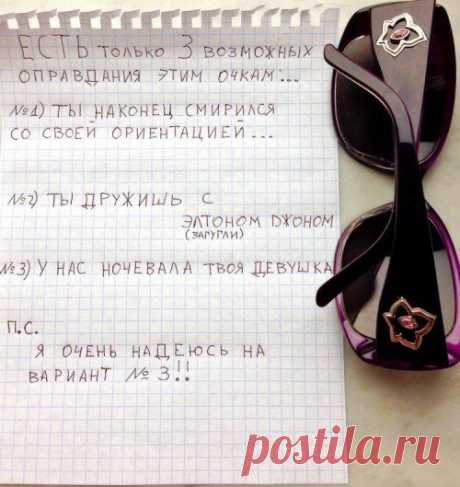 ЕСТЬ ТОЛЬКО 3 ВОЗМОЖНЫХ
ОПРАВДАНИЯ ЭТИМ ОЧКАМ...
№1) ТЫ НАКОНЕЦ СМИРИЛСЯ
СО СВОЕЙ ОРИЕНТАЦИЕЙ...
№2) ТЫ ДРУЖИШЬ С
ЭЛТОНОМ ДЖОНОМ
(ЗАГУГЛИ)
№3) У НАС НОЧЕВАЛА ТВОЯ ДЕВУШКА
П.С.
Я ОЧЕНЬ НАДЕЮСЬ НА
ВАРИАНТ № 3!!
postila.ru